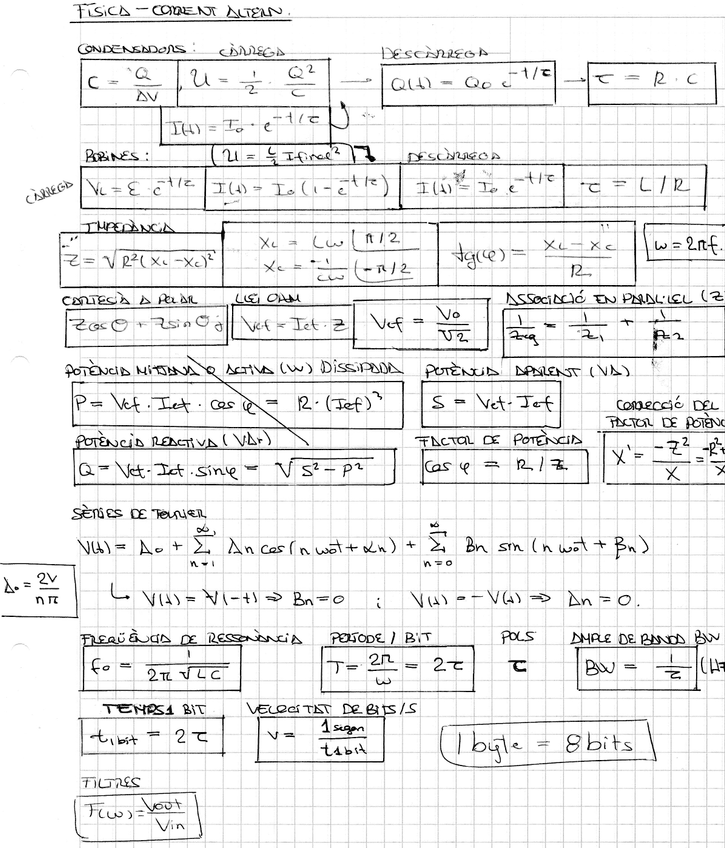 FÍSICA – CORRENT ALTERN.
CONDENSADORS: CÀRREGA DESCÀRREGA
C = Q/ΔV , U = 1/2 · Q²/C → Q(t) = Q₀ e^(-t/τ) → τ = R · C
I(t) = I₀ · e^(-t/τ)
BOBINES: (U = L/2 I final²) DESCÀRREGA
CÀRREGA V_L = ε · e^(-t/τ) I(t) = I₀ (1 - e^(-t/τ)) I(t) = I₀ e^(-t/τ) τ = L/R
IMPEDÀNCIA
Z = √R²(X_L - X_C)² X_L = Lω ∠π/2 tg(φ) = (X_L - X_C)/R ω = 2πf.
X_C = -1/Cω ∠-π/2
CARTESIÀ A POLAR LLEI OHM ASSOCIACIÓ EN PARAL·LEL (Z
Zcosθ + Zsinθj Vef = Ief · Z Vef = V₀/√2 1/Zeq = 1/Z₁ + 1/Z₂
POTÈNCIA MITJANA O ACTIVA (W) DISSIPADA POTÈNCIA APARENT (VA)
P = Vef · Ief · cos φ = R · (Ief)³ S = Vef · Ief CORRECCIÓ DEL
FACTOR DE POTÈNC
POTÈNCIA REACTIVA (VAr) FACTOR DE POTÈNCIA
Q = Vef · Ief · sinφ = √S² - P² cos φ = R/Z X' = -Z²/X = -R²+/X
SÈRIES DE FOURIER
V(t) = A₀ + ∑_(n=1)^∞ An cos(n ω₀t + αn) + ∑_(n=0)^∞ Bn sin (n ω₀t + βn)
A₀ = 2V/nπ ↳ V(t) = V(-t) ⇒ Bn = 0 ; V(t) = -V(t) ⇒ An = 0.
FREQÜÈNCIA DE RESSONÀNCIA PERÍODE / BIT POLS AMPLE DE BANDA BW
f₀ = 1/(2π √LC) T = 2π/ω = 2τ τ BW = 1/τ (Hz
TEMPS 1 BIT VELOCITAT DE BITS/S
t1bit = 2τ V = 1 segon/t1bit 1 byte = 8 bits
FILTRES
F(ω) = Vout/Vin